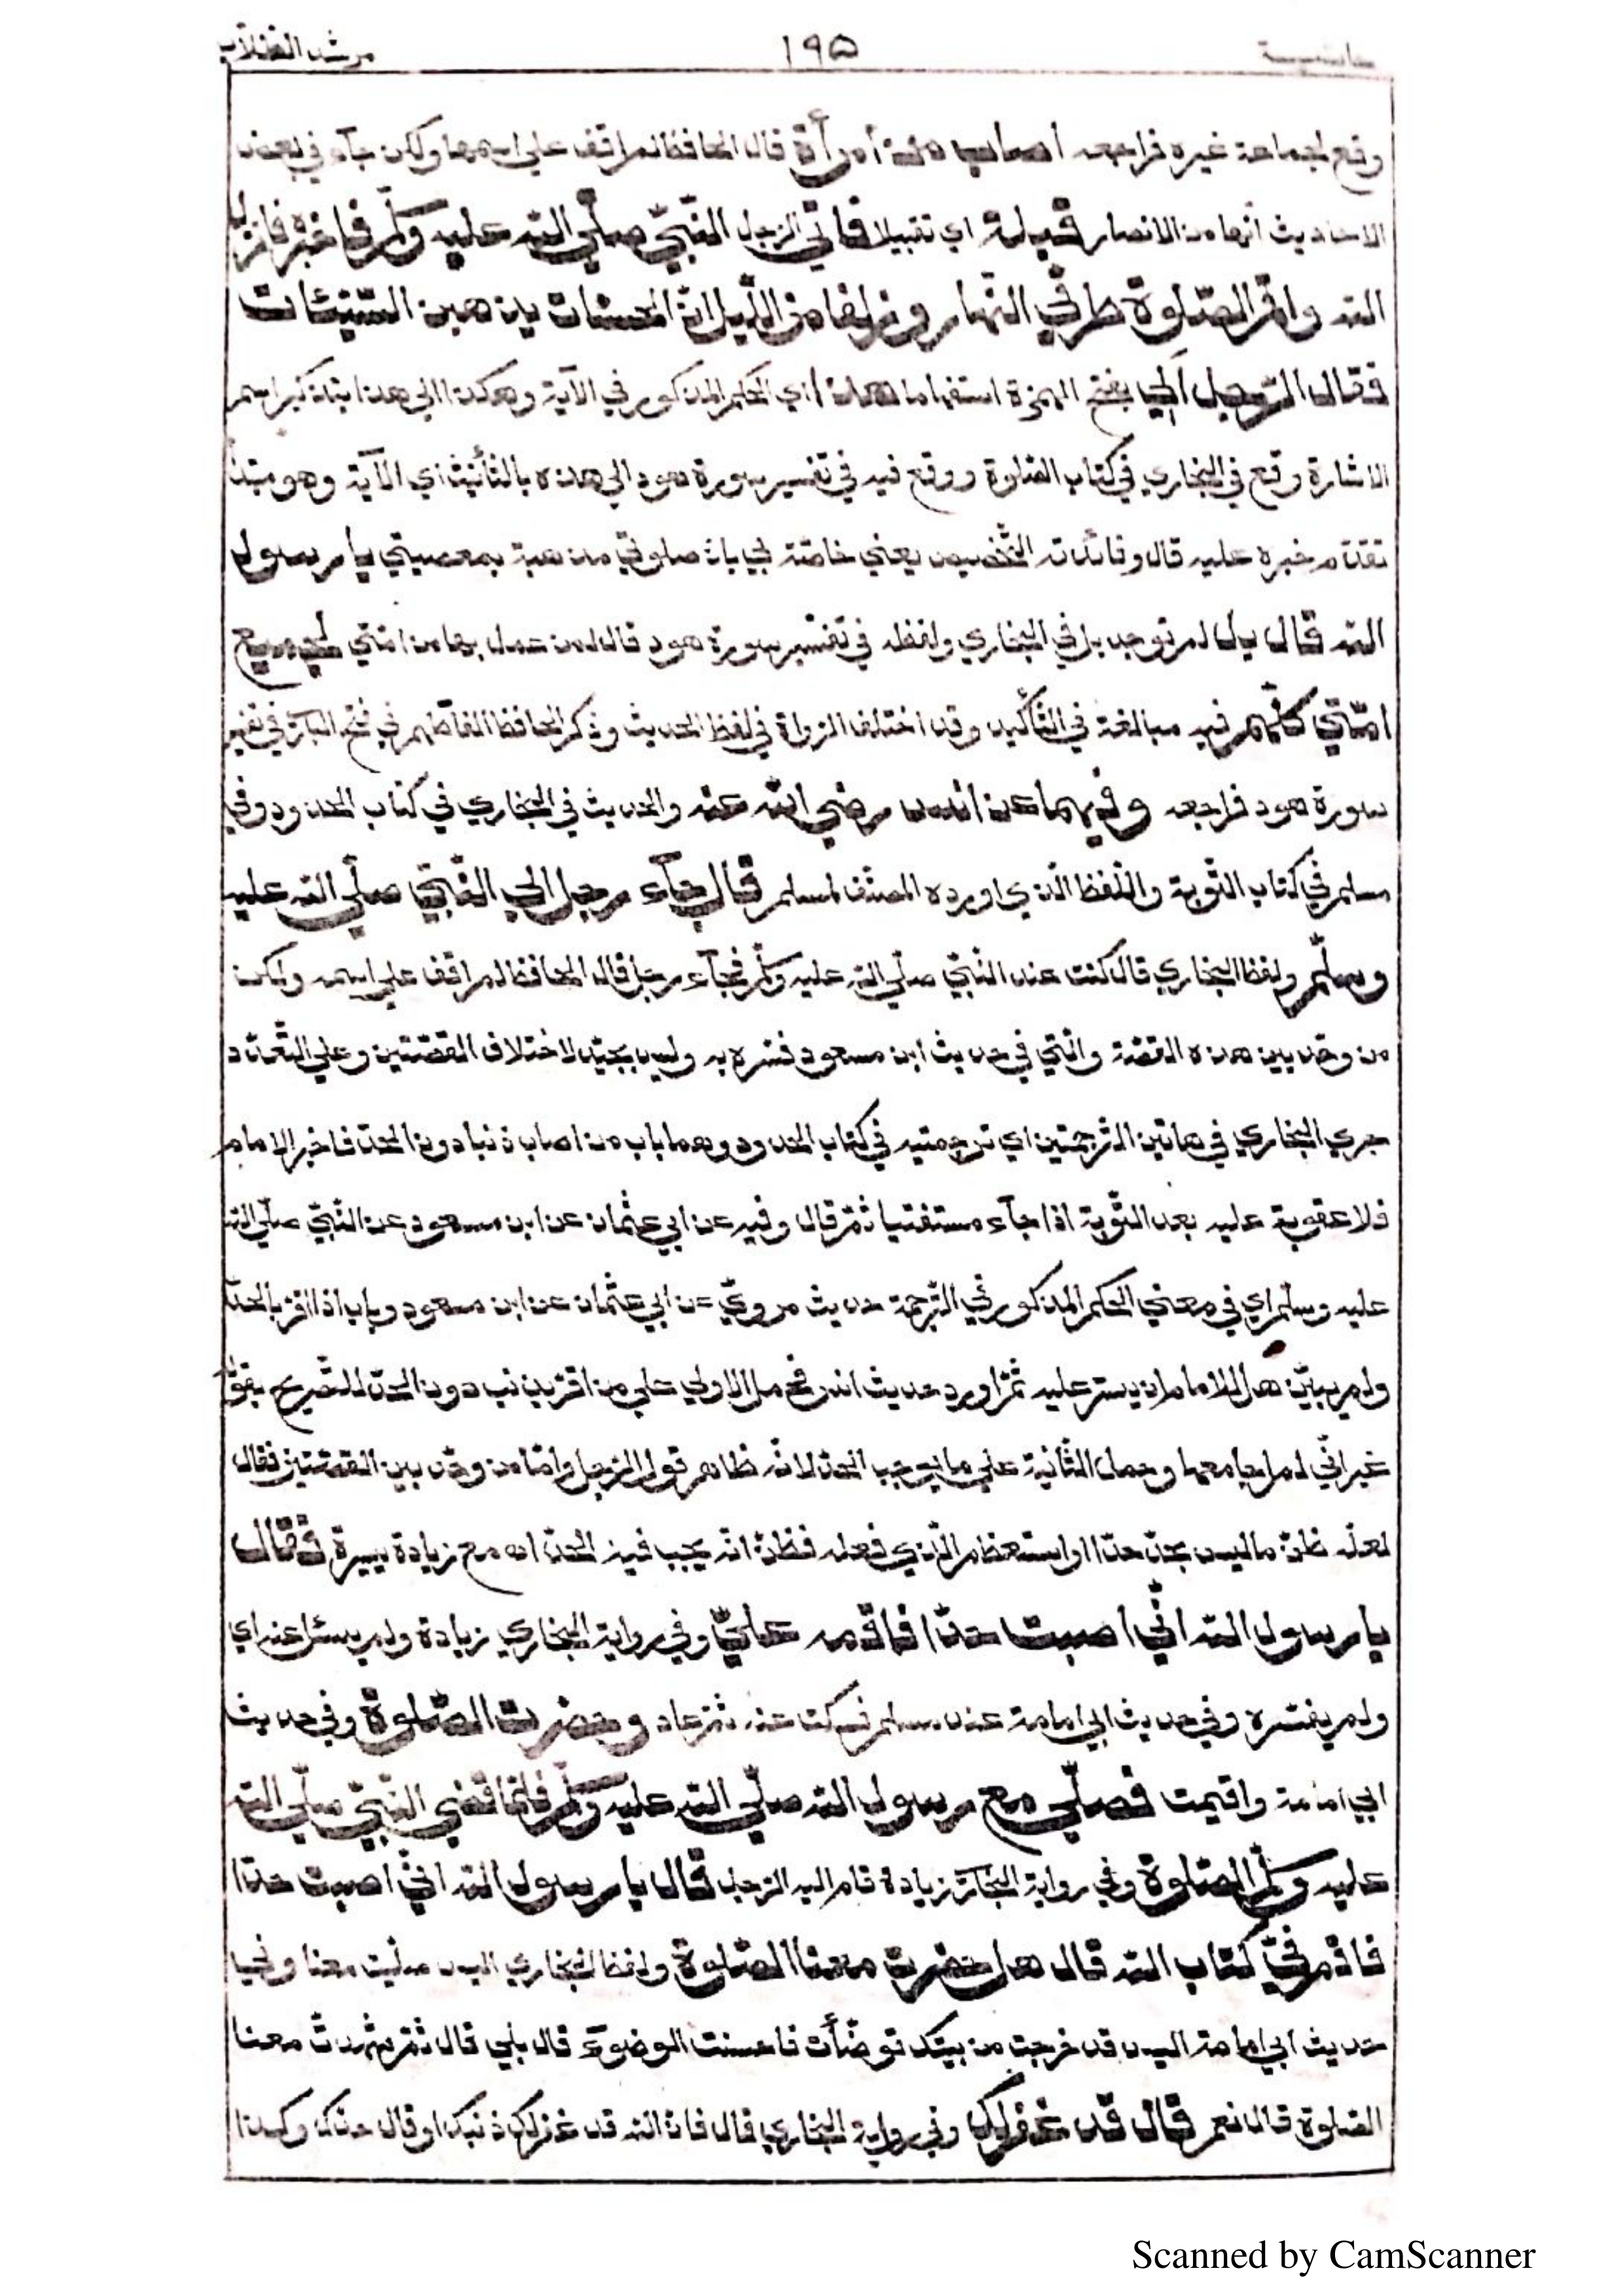 حاشية ١٩٥ مرشد الطلاب
وقع لجماعة غيره فراجعه اصاب من امرأة قال الحافظ لم اقف على اسمها ولكن جآء في بعض
الاحاديث أنها من الانصار قبلة اي تقبيلا فاتي الرجل النّبيّ صلّي الله عليه وسلّم فاخبره فانزل
الله واقم الصّلوة طرفي النّهار وزلفا من اللّيل انّ الحسنات يذهبن السّيّئات
فقال الرّجل ألي بفتح الهمزة استفهاما هذا اي الحكم المذكور في الآية وهكذا الي هذا بتذكير اسم
الاشارة وقع في البخاري في كتاب الصّلوة ووقع فيه في تفسير سورة هود الي هذه بالتّأنيث اي الآية وهو مبتدأ
تقدّم خبره عليه قال وفائدته التّخصيص يعني خاصّة لي بانّ صلوتي مذهبة بمعصيتي يا رسول
الله قال بل لم توجد بل في البخاري ولفظه في تفسير سورة هود قال لمن عمل بها من امّتي لجميع
امّتي كلّهم فيه مبالغة في التّأكيد وقد اختلف الرّواة في لفظ الحديث وذكر الحافظ الفاظهم في فتح الباري في تفسير
سورة هود فراجعه وفيهما عن انس رضي الله عنه والحديث في البخاري في كتاب الحدود وفي
مسلم في كتاب التّوبة واللّفظ الّذي اورده المصنّف لمسلم قال جآء رجل الي النّبيّ صلّي الله عليه
وسلّم ولفظ البخاري قال كنت عند النّبيّ صلّي الله عليه وسلّم فجآء رجل قال الحافظ لم اقف علي اسمه ولكن
من وحّد بين هذه القصّة والّتي في حديث ابن مسعود فسّره به وليس بجيّد لاختلاف القصّتين وعلي التّعدّد
جري البخاري في هاتين التّرجمتين اي ترجمتيه في كتاب الحدود وهما باب من اصاب ذنبا دون الحدّ فاخبر الامام
فلا عقوبة عليه بعد التّوبة اذا جآء مستفتيا ثمّ قال وفيه عن ابي عثمان عن ابن مسعود عن النّبيّ صلّي الله
عليه وسلّم اي في معني الحكم المذكور في التّرجمة حديث مرويّ عن ابي عثمان عن ابن مسعود وباب اذا اقرّ بالحدّ
ولم يبيّن هل للامام ان يستر عليه ثمّ اورد حديث انس فحمل الاولي علي من اقرّ بذنب دون الحدّ للتّصريح بقوله
غير انّي لم اجامعها وحمل الثّانية علي ما يوجب الحدّ لانّه ظاهر قول الرّجل وامّا من وحّد بين القصّتين فقال
لعلّه ظنّ ما ليس بحدّ حدّا او استعظم الّذي فعله فظنّ انّه يجب فيه الحدّ اه مع زيادة يسيرة فقال
يا رسول الله انّي اصبت حدّا فاقمه عليّ وفي رواية البخاري زيادة ولم يسئل عنه اي
ولم يفسّره وفي حديث ابي امامة عند مسلم فسكت عنه ثمّ عاد وحضرت الصّلوة وفي حديث
ابي امامة واقيمت فصلّي مع رسول الله صلّي الله عليه وسلّم فلمّا قضي النّبيّ صلّي الله
عليه وسلّم الصّلوة وفي رواية البخاري زيادة قام اليه الرّجل قال يا رسول الله انّي اصبت حدّا
فاقم فيّ كتاب الله قال هل حضرت معنا الصّلوة ولفظ البخاري اليس صلّيت معنا وفي
حديث ابي امامة اليس قد خرجت من بيتك توضّأت فاحسنت الوضوء قال بلي قال ثمّ شهدت معنا
الصّلوة قال نعم قال قد غفر لك وفي رواية البخاري قال فانّ الله قد غفر لك ذنبك او قال حدّك وكذا
Scanned by CamScanner